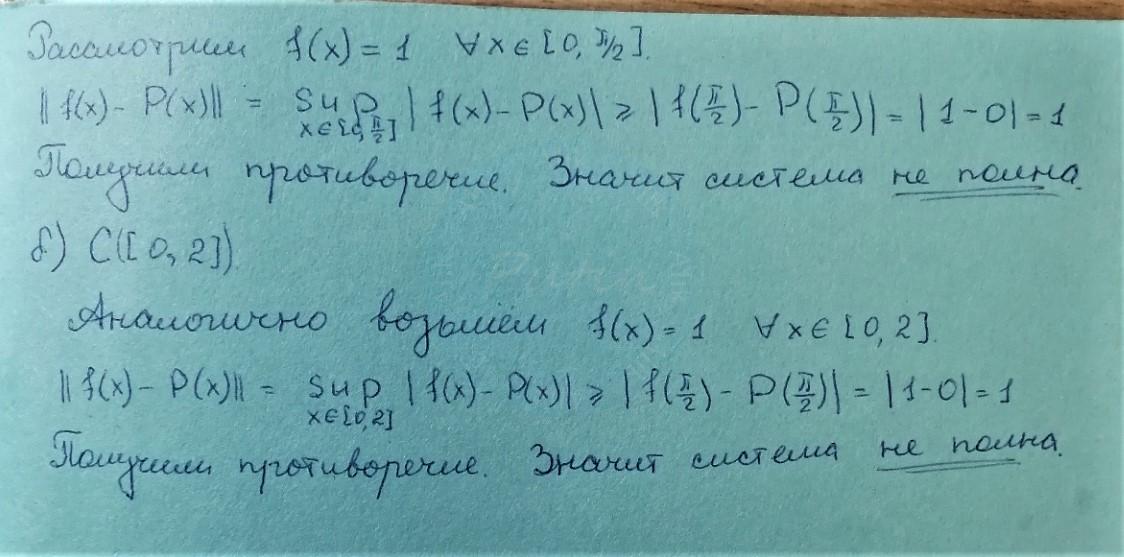 Рассмотрим f(x) = 1 ∀x∈[0, π/2].
||f(x) - P(x)|| = sup x∈[0,π/2] |f(x) - P(x)| ⩾ |f(π/2) - P(π/2)| = |1-0| = 1
Получили противоречие. Значит система не полна.
б) C([0, 2])
Аналогично возьмём f(x) = 1 ∀x∈[0, 2].
||f(x) - P(x)|| = sup x∈[0,2] |f(x) - P(x)| ⩾ |f(π/2) - P(π/2)| = |1-0| = 1
Получили противоречие. Значит система не полна.